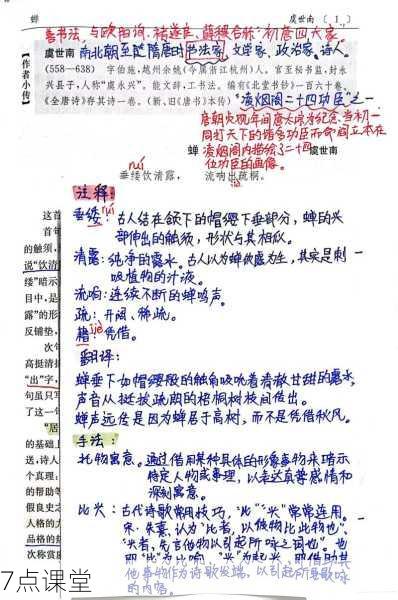 蝉
虞世南 〔 1 〕
善书法，与欧阳询、褚遂良、薛稷合称"初唐四大家"。
【作者小传】
虞世南 南北朝至隋唐时书法家、文学家、政治家、诗人。
(558—638) 字伯施，越州余姚(今属浙江杭州)人。官至秘书监，封永
兴县子，人称"虞永兴"。能文辞，工书法。编有《北堂书钞》一百六十卷。
《全唐诗》存其诗一卷。(新、旧《唐书》本传)
"凌烟阁二十四功臣"之一
唐朝贞观年间唐太宗为纪念当初一
同打天下的诸多功臣而命阎立本在
凌烟阁内描绘了二十四
位功臣的画像。
蝉
虞世南
ruí
垂緌饮清露，
流响出疏桐。
注释:
垂緌: ruí 古人结在颔下的帽缨下垂部分，蝉的头
部伸出的触须，形状与其相似。
清露: 纯净的露水。古人以为蝉饮露为生，其实是刺
吸植物的汁液。
流响: 连续不断的蝉鸣声。
疏: 开阔、稀疏。
藉: jiè 凭借。
翻译:
蝉垂下如帽缨般的触角吸吮着清澈甘甜的露水，
声音从挺拔疏朗的梧桐树枝间传出。
蝉声远传是因为蝉居于高树，而不是凭借秋风。
手法:
托物寓意。通过借用某种具体的形象事物来暗示
特定人物或事理，以表达真挚感情和
深刻寓意。
比兴: 古代诗歌常用技巧，"比""兴"常常连用。
宋·朱熹，认为"比者，以彼物比此物也"、
"兴者，先言他物以引起所咏之词也"。也
他事物作为诗歌发端，以引起所要歌咏
的内容。
这首
首句
的触须，
说"饮清
緌"暗示
目中，是
露"的形
反铺垫，
次句
高挺清拔
"出"字，
句虽只写
了这一
"居
的基础上
送，诗人
个真理:
的帮助等
假良史之
人格的力
品格的热
次称赏虞
7点课堂